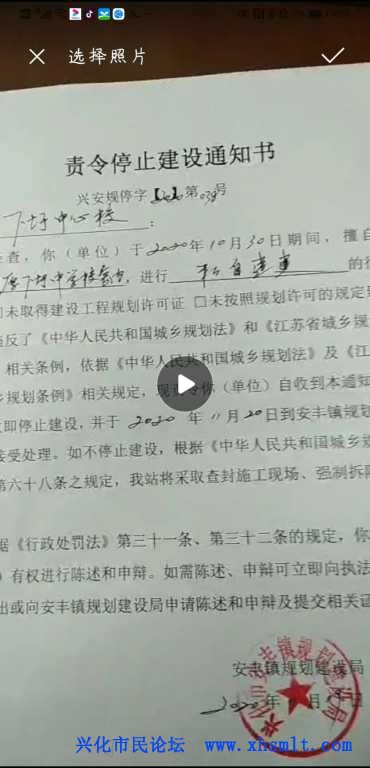 选择照片
责令停止建设通知书
兴安规停字 2020 第 03 号
下圩中心校:
查,你(单位)于 2020 年 10 月 30 日期间,擅自
下圩中学校 ,进行 擅自建 的行
未取得建设工程规划许可证 □未按照规划许可的规定
反了《中华人民共和国城乡规划法》和《江苏省城乡规
相关条例,依据《中华人民共和国城乡规划法》及《江
乡规划条例》相关规定,现责令你(单位)自收到本通知
即停止建设,并于 2020 年 11 月 20 日到安丰镇规划
接受处理。如不停止建设,根据《中华人民共和国城乡规
第六十八条之规定,我站将采取查封施工现场、强制拆除
据《行政处罚法》第三十一条、第三十二条的规定,你
)有权进行陈述和申辩。如需陈述、申辩可立即向执法
出或向安丰镇规划建设局申请陈述和申辩及提交相关证
安丰镇规划建设局
2020 年 月 日
兴化市安丰镇规划建设局
兴化市民论坛 www.xhsmlt.com